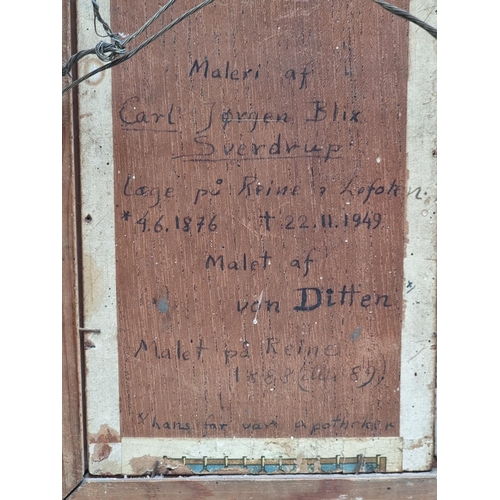 Maleri af
Carl Jørgen Blix
Sverdrup
læge på Reine i Lofoten.
* 4.6.1876 † 22.11.1949
Malet af
von Ditten *)
Malet på Reine
1888 (89).
*) hans far var apotheker